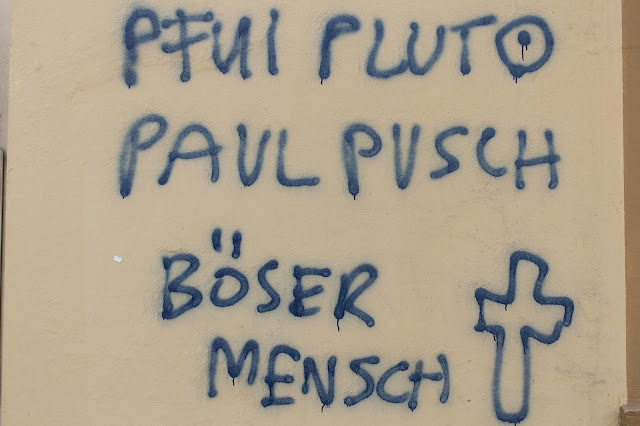 PFUI PLUTO
PAUL PUSCH
BÖSER
MENSCH